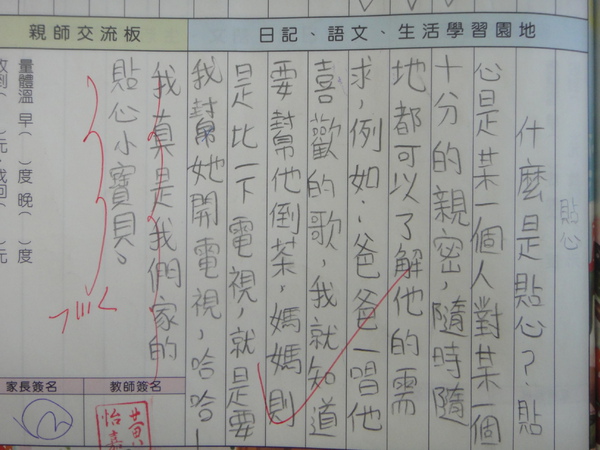 親師交流板
日記、語文、生活學習園地
貼心
什麼是貼心？貼
心是某一個人對某一個
十分的親密，隨時隨
地都可以了解他的需
求，例如：爸爸一唱他
喜歡的歌，我就知道
要幫他倒茶，媽媽則
是比一下電視，就是要
我幫她開電視，哈哈！
我真是我們家的
貼心小寶貝。
量體溫 早（ ）度 晚（ ）度
家長簽名
教師簽名
黃怡嘉